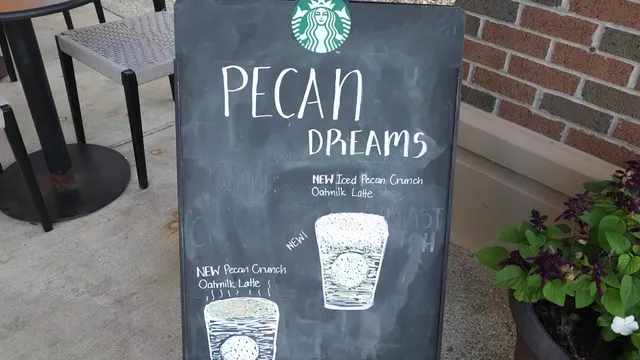 PECAN
DREAMS
NEW Iced Pecan Crunch
Oatmilk Latte
NEW!
NEW Pecan Crunch
Oatmilk Latte